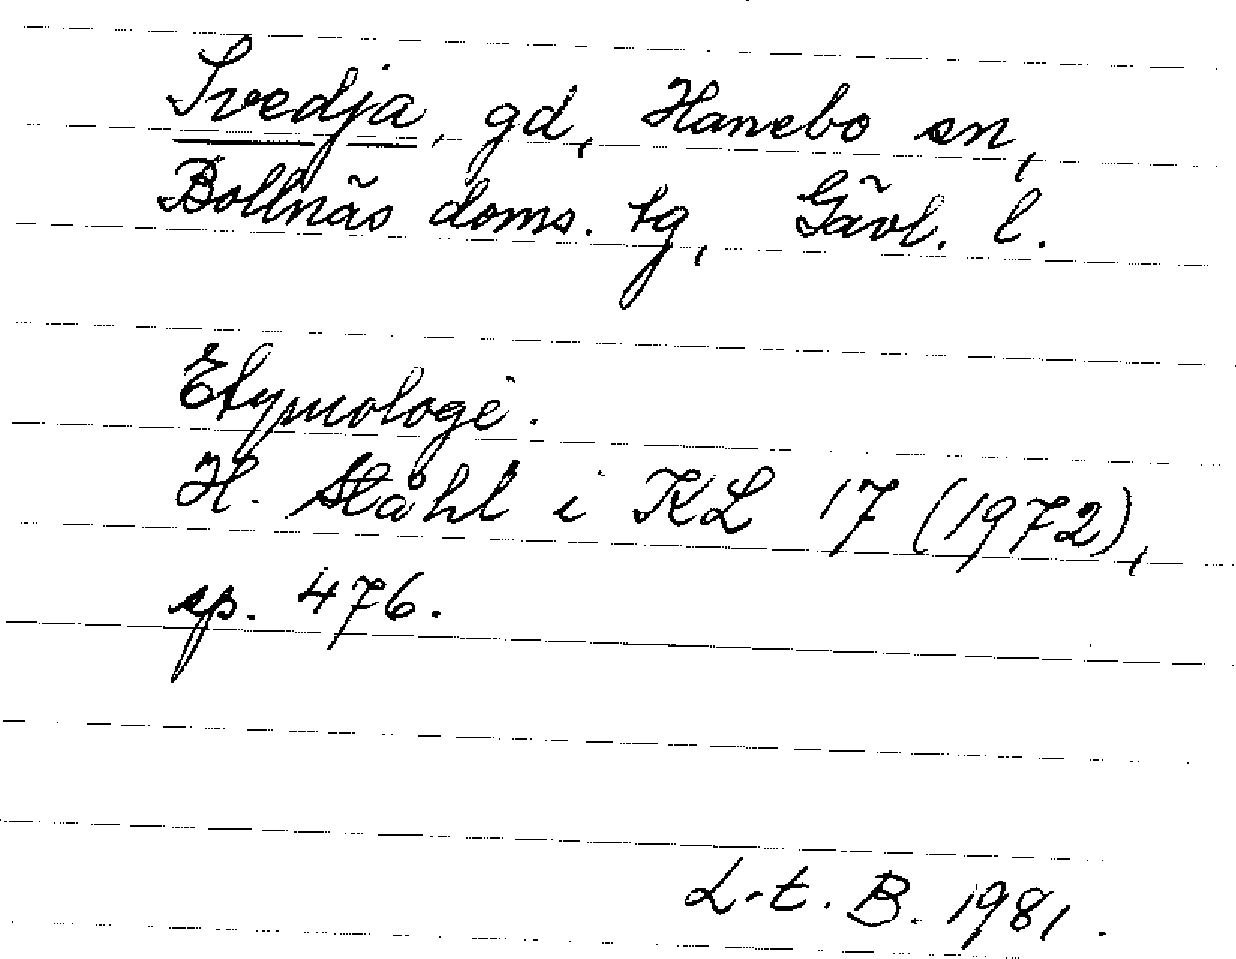 Svedja, gd, Hanebo sn,
Bollnäs doms. tg, Gävl. l.
Etymologi.
H. Ståhl i KL 17 (1972),
sp. 476.
L-t. B. 1981.